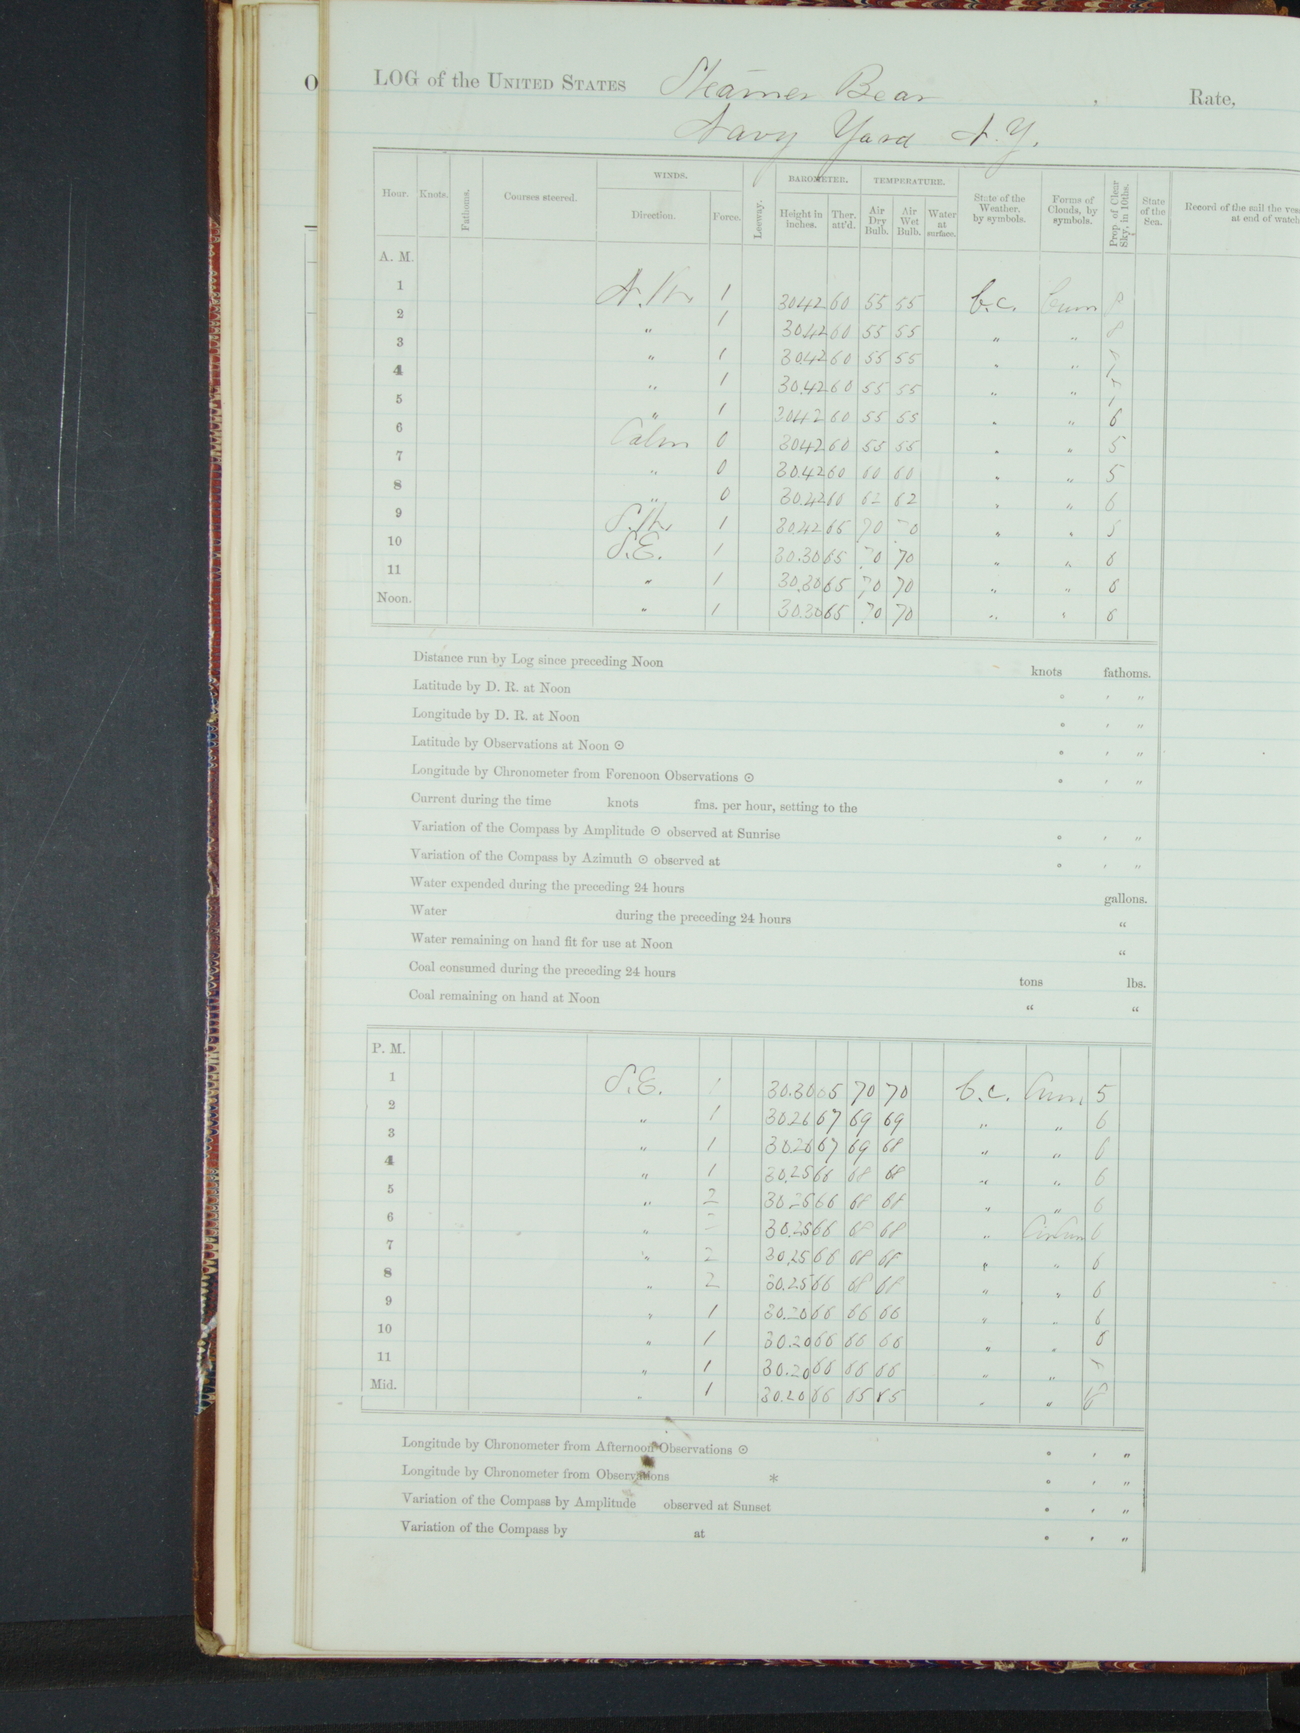 O
LOG of the UNITED STATES Steamer Bear , Rate,
Navy Yard N.Y.
Hour. Knots. Fathoms. Courses steered. WINDS. Direction. Force. Leeway. BAROMETER. Height in inches. Ther. att'd. TEMPERATURE. Air Dry Bulb. Air Wet Bulb. Water at surface. State of the Weather, by symbols. Forms of Clouds, by symbols. Prop. of Clear Sky, in 10ths. State of the Sea. Record of the sail the at end of
A. M.
1 1 3042 60 55 55 b.c. Cum 8
2 " 1 3042 60 55 55 " " 8
3 " 1 3042 60 55 55 " "
4 " 1 30.42 60 55 55 " "
5 " 1 3042 60 55 55 " " 6
6 Calm 0 3042 60 55 55 " " 5
7 " 0 30.42 60 60 60 " " 5
8 " 0 30.42 60 62 62 " " 6
9 1 30.42 65 70 70 " " 5
10 S.E. 1 30.30 65 70 70 " " 6
11 " 1 30.30 65 70 70 " " 6
Noon. " 1 30.30 65 70 70 " " 6
Distance run by Log since preceding Noon knots fathoms.
Latitude by D. R. at Noon ° ' "
Longitude by D. R. at Noon ° ' "
Latitude by Observations at Noon ⊙ ° ' "
Longitude by Chronometer from Forenoon Observations ⊙ ° ' "
Current during the time knots fms. per hour, setting to the
Variation of the Compass by Amplitude ⊙ observed at Sunrise ° ' "
Variation of the Compass by Azimuth ⊙ observed at ° ' "
Water expended during the preceding 24 hours gallons.
Water during the preceding 24 hours "
Water remaining on hand fit for use at Noon "
Coal consumed during the preceding 24 hours tons lbs.
Coal remaining on hand at Noon " "
P. M.
1 S.E. 1 30.30 65 70 70 b.c. Cum 5
2 " 1 30.26 67 69 69 " " 6
3 " 1 30.26 67 69 68 " " 6
4 " 1 30.25 66 68 68 " " 6
5 " 2 30.25 66 68 68 " " 6
6 " 2 30.25 66 68 68 " CirCum 6
7 " 2 30.25 66 68 68 " " 6
8 " 2 30.25 66 68 68 " " 6
9 " 1 30.20 66 66 66 " " 6
10 " 1 30.20 66 66 66 " " 6
11 " 1 30.20 66 66 66 " "
Mid. " 1 30.20 66 65 65 " "
Longitude by Chronometer from Afternoon Observations ⊙ ° ' "
Longitude by Chronometer from Observations * ° ' "
Variation of the Compass by Amplitude observed at Sunset ° ' "
Variation of the Compass by at ° ' "